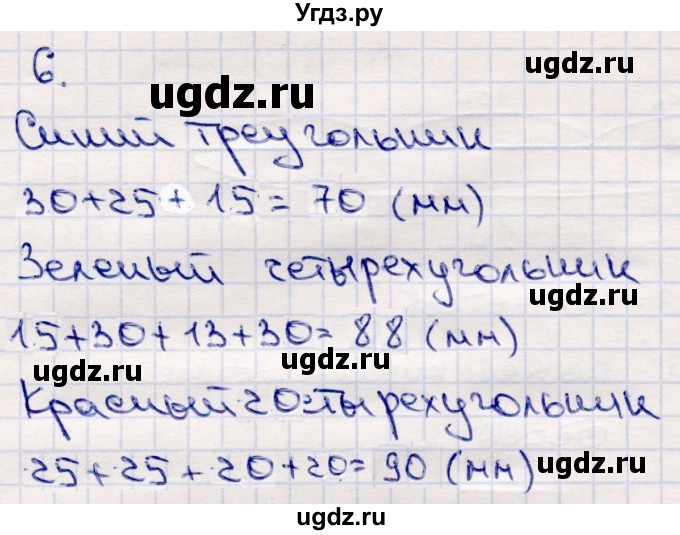 Угдз.ру
6.
ugdz.ru
ugdz.ru
Синий треугольник
30+25+15=70 (мм)
ugdz.ru
Зеленый четырехугольник
ugdz.ru
15+30+13+30=88 (мм)
ugdz.ru
ugdz.ru
Красный 20:тырехугольник
25+25+20+20=90 (мм)
ugdz.ru
ugdz.ru
ugdz.ru